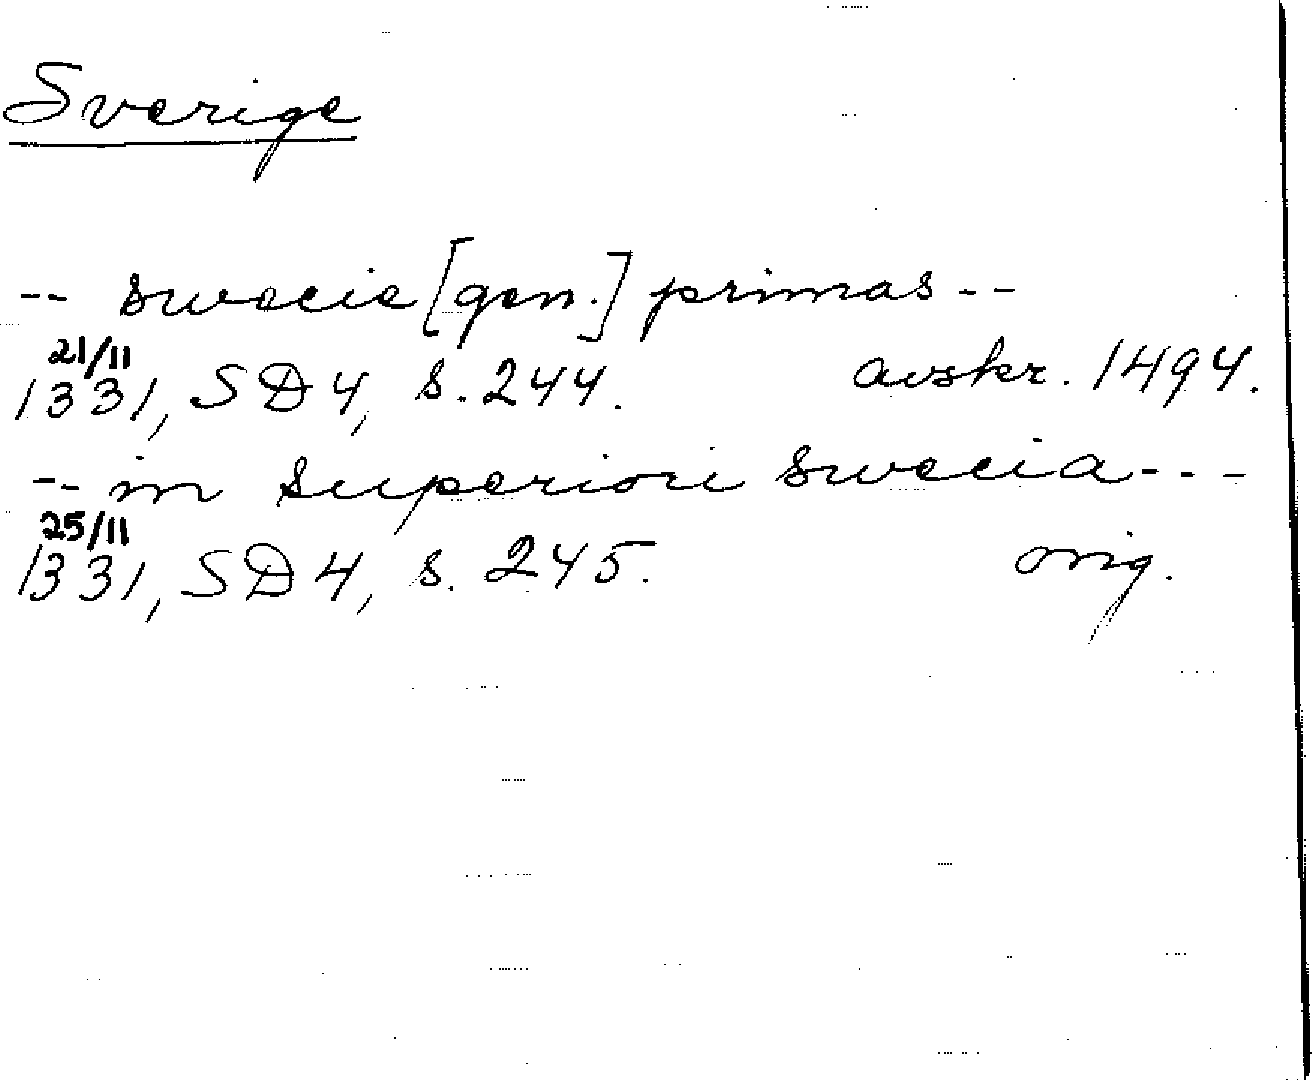 Sverige
-- swecie [gen.] primas --
21/11
1331, SD 4, s. 244. avskr. 1494.
-- in superiori swecia ---
25/11
1331, SD 4, s. 245. orig.